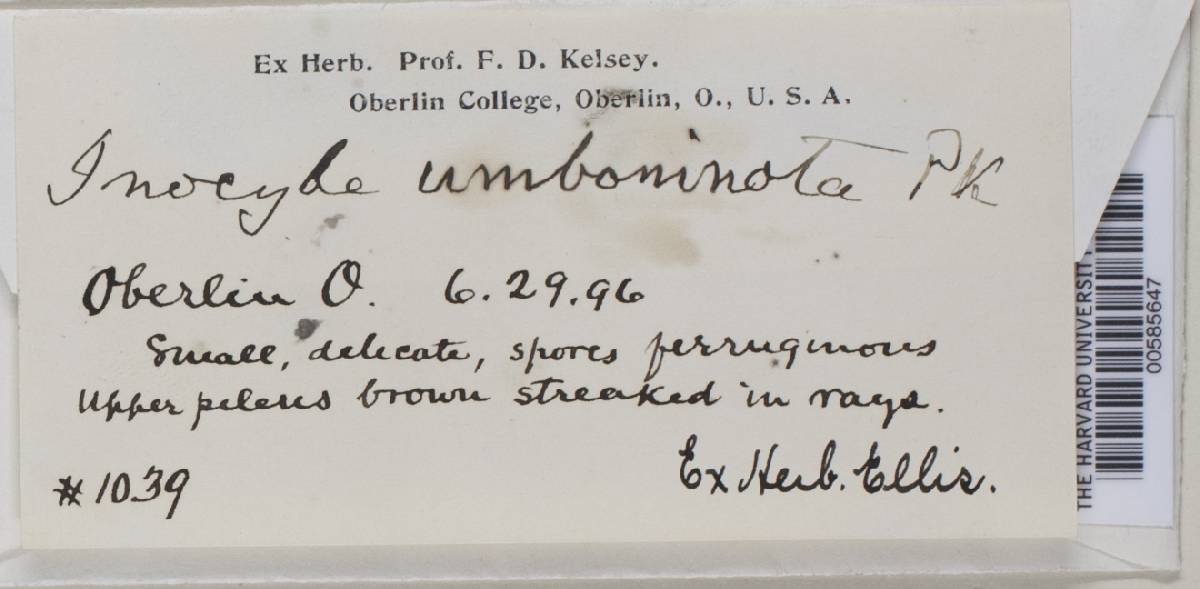 Ex Herb. Prof. F. D. Kelsey.
Oberlin College, Oberlin, O., U. S. A.
Inocybe umboninota PK
Oberlin O. 6.29.96
Small, delicate, spores ferruginous
Upper pileus brown streaked in rays.
#1039
Ex Herb. Ellis.
THE HARVARD UNIVERSIT
00585647